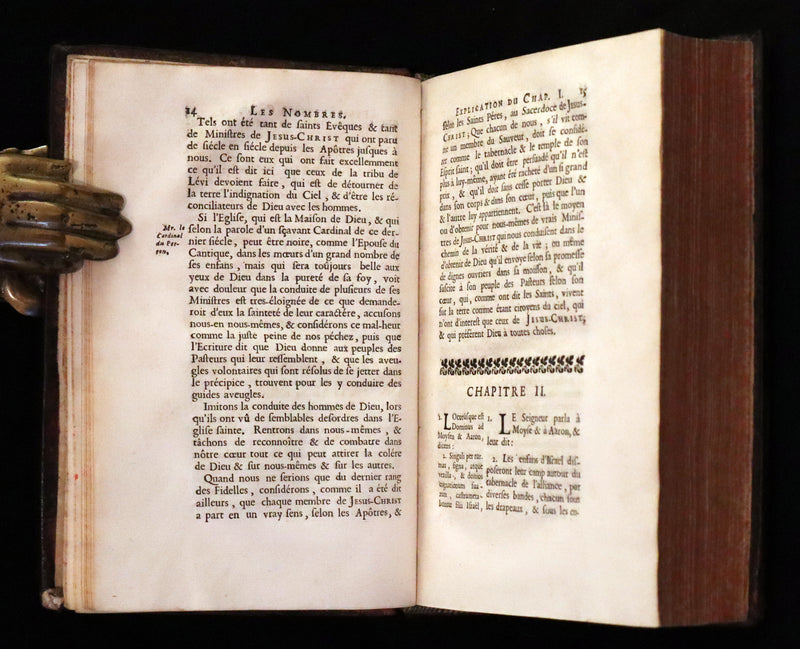 24 LES NOMBRES.
Tels ont été tant de saints Evêques & tant
de Ministres de JESUS-CHRIST qui ont paru
de siécle en siécle depuis les Apôtres jusques à
nous. Ce sont eux qui ont fait excellemment
ce qu'il est dit ici que ceux de la tribu de
Lévi devoient faire, qui est de détourner de
la terre l'indignation du Ciel, & d'être les ré-
conciliateurs de Dieu avec les hommes.
Si l'Eglise, qui est la Maison de Dieu, & qui
selon la parole d'un sçavant Cardinal de ce der-
nier siécle, peut être noire, comme l'Epouse du
Cantique, dans les mœurs d'un grand nombre de
ses enfans, mais qui sera toujours belle aux
yeux de Dieu dans la pureté de sa foy, voit
avec douleur que la conduite de plusieurs de ses
Ministres est tres-éloignée de ce que demande-
roit d'eux la sainteté de leur caractére, accusons
nous-en nous-mêmes, & considérons ce mal-heur
comme la juste peine de nos péchez, puis que
l'Ecriture dit que Dieu donne aux peuples des
Pasteurs qui leur ressemblent, & que les aveu-
gles volontaires qui sont résolus de se jetter dans
le précipice, trouvent pour les y conduire des
guides aveugles.
Imitons la conduite des hommes de Dieu, lors
qu'ils ont vû de semblables desordres dans l'E-
glise sainte. Rentrons dans nous-mêmes, &
tâchons de reconnoître & de combatre dans
nôtre cœur tout ce qui peut attirer la colére
de Dieu & sur nous-mêmes & sur les autres.
Quand nous ne serions que du dernier rang
des Fidelles, considérons, comme il a été dit
ailleurs, que chaque membre de JESUS-CHRIST
a part en un vray sens, selon les Apôtres, &
Mr. le
Cardinal
du Per-
ron.
EXPLICATION DU CHAP. I. 25
selon les Saints Péres, au Sacerdoce de JESUS-
CHRIST; Que chacun de nous, s'il vit com-
me un membre du Sauveur, doit se considé-
rer comme le tabernacle & le temple de son
Esprit saint; qu'il doit être persuadé qu'il n'est
plus à luy-même, ayant été racheté d'un si grand
prix, & qu'il doit sans cesse porter Dieu &
dans son corps & dans son cœur, puis que l'un
& l'autre luy appartiennent. C'est là le moyen
ou d'obtenir pour nous-mêmes de vrais Minis-
tres de JESUS-CHRIST qui nous conduisent dans le
chemin de la vérité & de la vie; ou même
d'obtenir de Dieu qu'il envoye selon sa promesse
de dignes ouvriers dans sa moisson, & qu'il
suscite à son peuple des Pasteurs selon son
cœur, qui, comme ont dit les Saints, vivent
sur la terre comme étant citoyens du ciel, qui
n'ont d'interest que ceux de JESUS-CHRIST,
& qui préférent Dieu à toutes choses.
CHAPITRE II.
1. LOcutusque est
Dominus ad
Moysen & Aaron,
dicens:
2. Singuli per tur-
mas, signa, atque
vexilla, & domos
cognationum sua-
rum, castrameta-
buntur filii Israël,
1. LE Seigneur parla à
Moyse & à Aaron, &
leur dit:
2. Les enfans d'Israel dis-
poseront leur camp autour du
tabernacle de l'alliance, par
diverses bandes, chacun sous
les drapeaux, & sous les en-